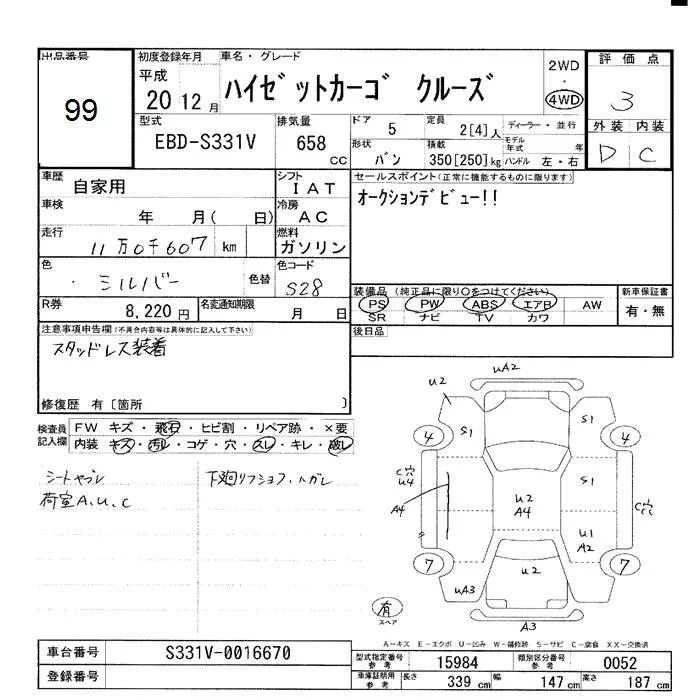 出品番号
99
初度登録年月
平成
20 12 月
車名・グレード
ハイゼットカーゴ クルーズ
2WD
・
4WD
評価点
3
外装 内装
D C
型式
EBD-S331V
排気量
658
cc
ドア
5
定員
2[4]人
ディーラー・並行
形状
バン
積載
350[250]kg
モデル年式 年
ハンドル 左・右
車歴
自家用
シフト
IAT
車検
年 月( 日)
冷房
AC
走行
11万0千607 km
燃料
ガソリン
色
・シルバー
色替
色コード
S28
R券
8,220円
名変通知期限
月 日
セールスポイント(正常に機能するものに限ります)
オークションデビュー!!
装備品(純正品に限り○をつけてください)
PS PW ABS エアB AW
SR ナビ TV カワ
新車保証書
有・無
後日品
注意事項申告欄(不具合内容等は具体的に記入して下さい)
スタッドレス装着
修復歴 有〔箇所 〕
検査員記入欄
FW キズ・飛石・ヒビ割・リペア跡・×要
内装 キズ・汚レ・コゲ・穴・スレ・キレ・破レ
シートヤブレ
荷室A、U、C
下廻リフショク、ハガレ
UA2
U2
S1
S1
4
4
C穴
U4
A4
S1
C穴
U2
A4
U1
A2
7
7
U2
UA3
A3
有
スペア
A-キズ E-エクボ U-凹み W-補修跡 S-サビ C-腐食 XX-交換済
車台番号
S331V-0016670
登録番号
型式指定番号
参考
15984
類別区分番号
参考
0052
車庫証明用
参考
長さ 339 cm 幅 147 cm 高さ 187 cm